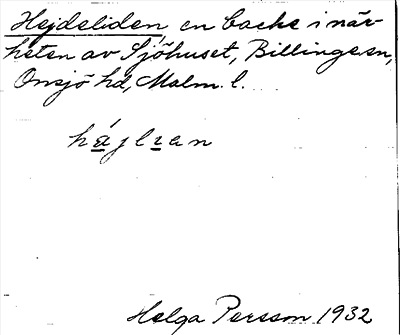 Hejdeliden en backe i när-
heten av Sjöhuset, Billinge sn,
Onsjö hd, Malm. l.
hájlıan
Helga Persson 1932